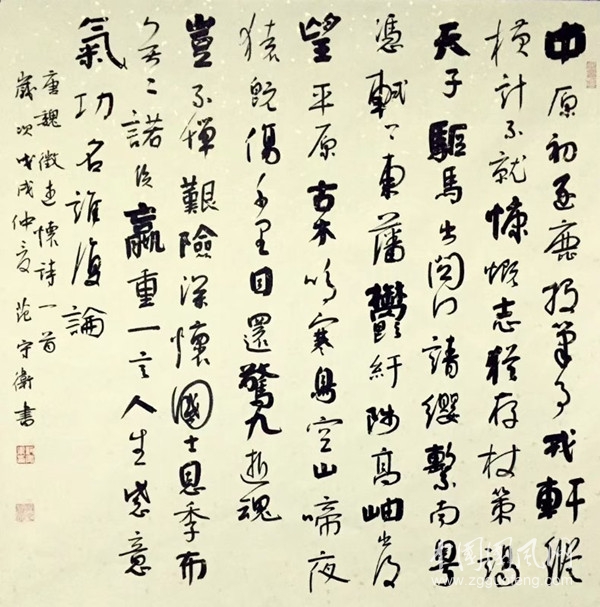 中原初逐鹿投筆事戎軒縱
橫計不就慷慨志猶存杖策謁
天子驅馬出関門請纓繫南粵
憑軾下東藩鬱紆陟高岫出没
望平原古木鳴寒鳥空山啼夜
猿既傷千里目還驚九逝魂
豈不憚艱險深懷國士恩季布
無二諾侯嬴重一言人生感意
氣功名誰復論
唐魏徵述懷詩一首
歲次戊戌仲夏范守衛書